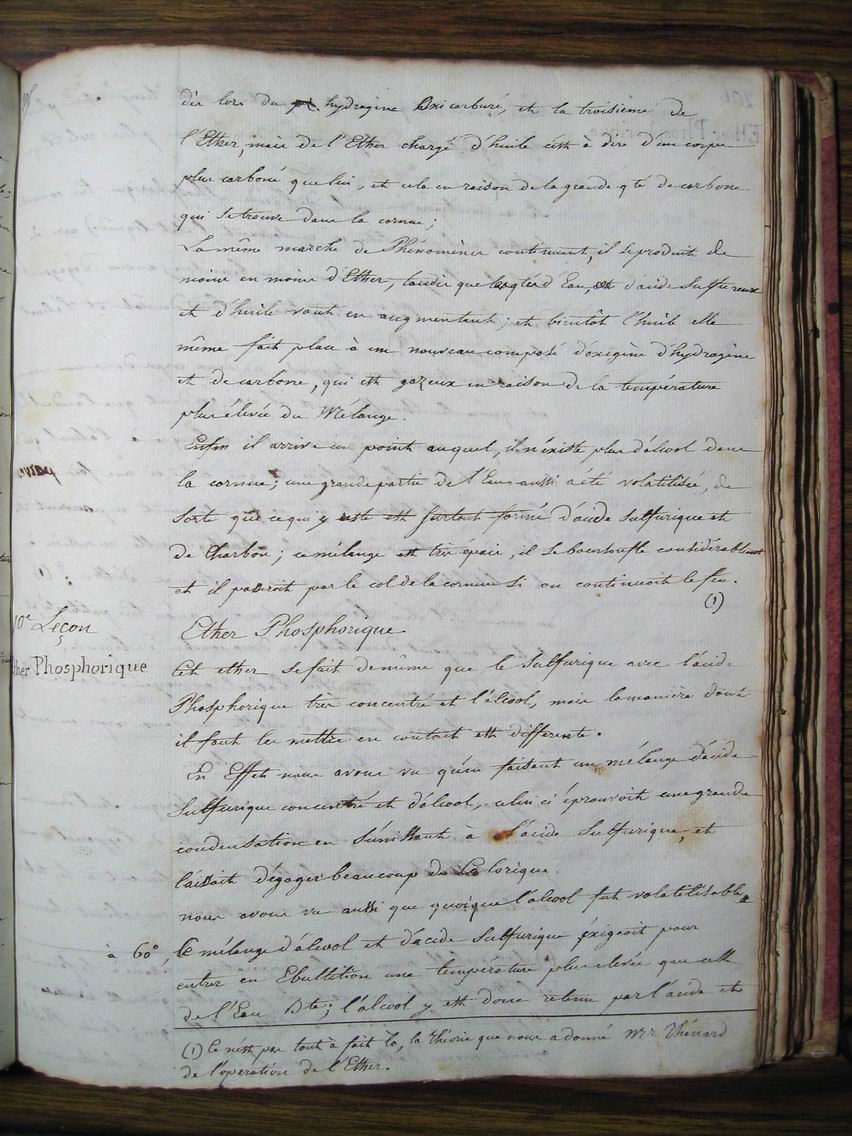 dès lors du hydrogène oxicarburé, et la troisieme de
l'Ether, mais de l'Ether chargé d'huile c'est à dire d'un corps
plus carboné que lui, et cela en raison de la grande qté de carbone
qui se trouve dans la cornue;
La même marche de Phénomènes continuant, il se produit de
moins en moins d'Ether, tandis que les qtés d'Eau, d'acide Sulfureux
et d'huile vont en augmentant; et bientôt l'huile elle
même fait place à un nouveau composé d'oxigène d'hydrogène
et de carbone, qui est gazeux en raison de la température
plus élevée du Mélange.
Enfin il arrive un point auquel, il n'éxiste plus d'álcool dans
la cornue; une grande partie de l'Eau aussi a été volatilisée, de
Sorte que ce qui y reste est surtout formé d'acide Sulfurique et
de Charbon; ce mélange est très épais, il se boursouffle considérablement
et il passeroit par le col de la cornue si on continuoit le feu.
(1)
10e Leçon
Ether Phosphorique
Ether Phosphorique
Cet ether se fait de même que le Sulfurique avec l'acide
Phosphorique très concentré et l'álcool, mais la manière dont
il faut les mettre en contact est différente.
En Effet nous avons vu qu'en faisant un mélange d'acide
Sulfurique concentré et d'álcool, celui ci éprouvoit une grande
condensation en S'unissant à l'ácide Sulfurique, et
laissoit dégager beaucoup de Calorique.
nous avons vu aussi que quoique l'álcool fut volatilisable
à 60°, le mélange d'álcool et d'acide Sulfurique éxigeoit pour
entrer en Ebullition une température plus elevée que celle
de l'Eau Dte; l'álcool y est donc retenu par l'acide et
(1) Ce n'est pas tout à fait là, la théorie que nous a donné Mr. Thénard
de l'opération de l'Ether.